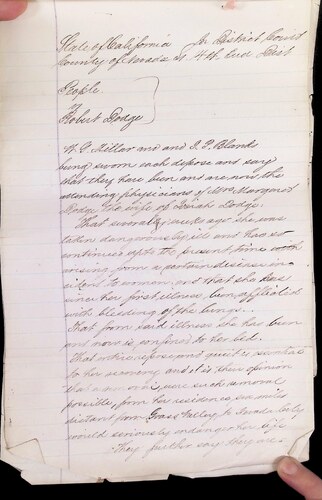 State of California In District Court
County of Nevada ss. 4th Jud Dist
People
vs
Robert Dodge
W. G. and and J. P.
being sworn each depose and say
that they have been and are now the
attending physicians of Mrs Margaret
Dodge the wife of Dodge.
That several weeks ago she was
taken dangerously ill and has so
continued up to the present time
arising from a certain disease in
to women and that she has
since her first illness, been afflicted
with bleeding of the lungs.
That from said illness she has been
and now is confined to her bed.
That repose and quiet is essential
to her and it is their opinion
that a removal, were such removal
possible, from her residence, six miles
distant from Grass Valley, to Nevada City
would seriously endanger her life
They further say they are